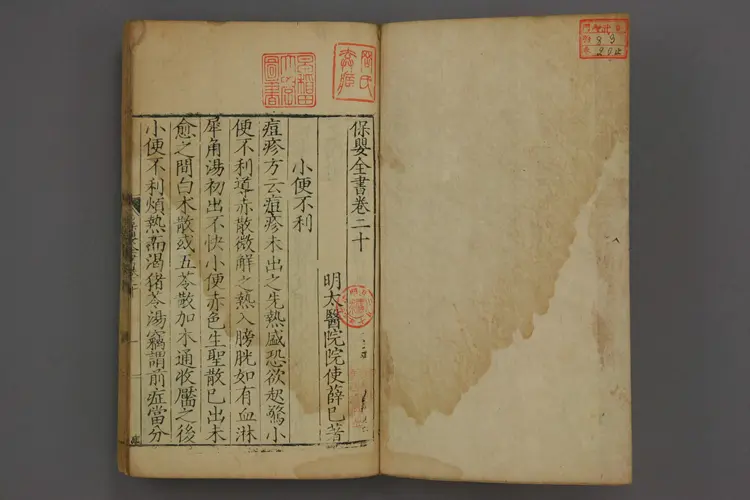 保嬰全書卷二十
明太醫院院使薛己著
小便不利
痘疹方云痘疹未出之先熱盛恐欲起驚小
便不利導赤散微解之熱入膀胱如有血淋
犀角湯初出不快小便赤色生聖散已出未
愈之間白木散或五苓散加木通收靨之後
小便不利煩熱而渴猪苓湯竊謂前症當分
圖書